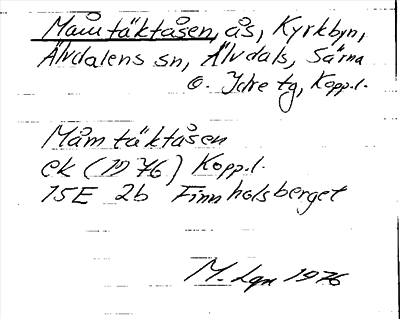 Måmtäktåsen, ås, Kyrkbyn,
Älvdalens sn, Älvdals, Särna
o. Idre tg, Kopp.l.
Måmtäktåsen
ek (1976) Kopp.l.
15E 2b Finnholsberget
M. Lgn 1976